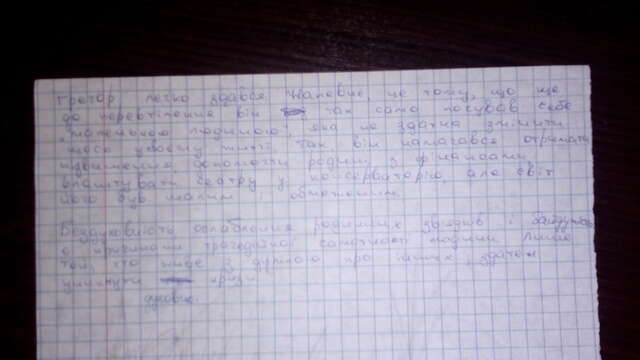 Грегор легко здався. Напевне, це тому, що ще
до перевтілення він так само почував себе
"маленькою людиною", яка не здатна змінити
щось у своєму житті. Так, він намагався отримати
підвищення, допомогти родині з фінансами,
влаштувати сестру у консерваторію, але світ
його був малим і обмеженим.
Бездуховність, ослаблення родинних зв'язків і
є причинами трагедійної самотності людини. Лише
той, хто живе з думкою про інших, здатен
уникнути кризи
духовне.